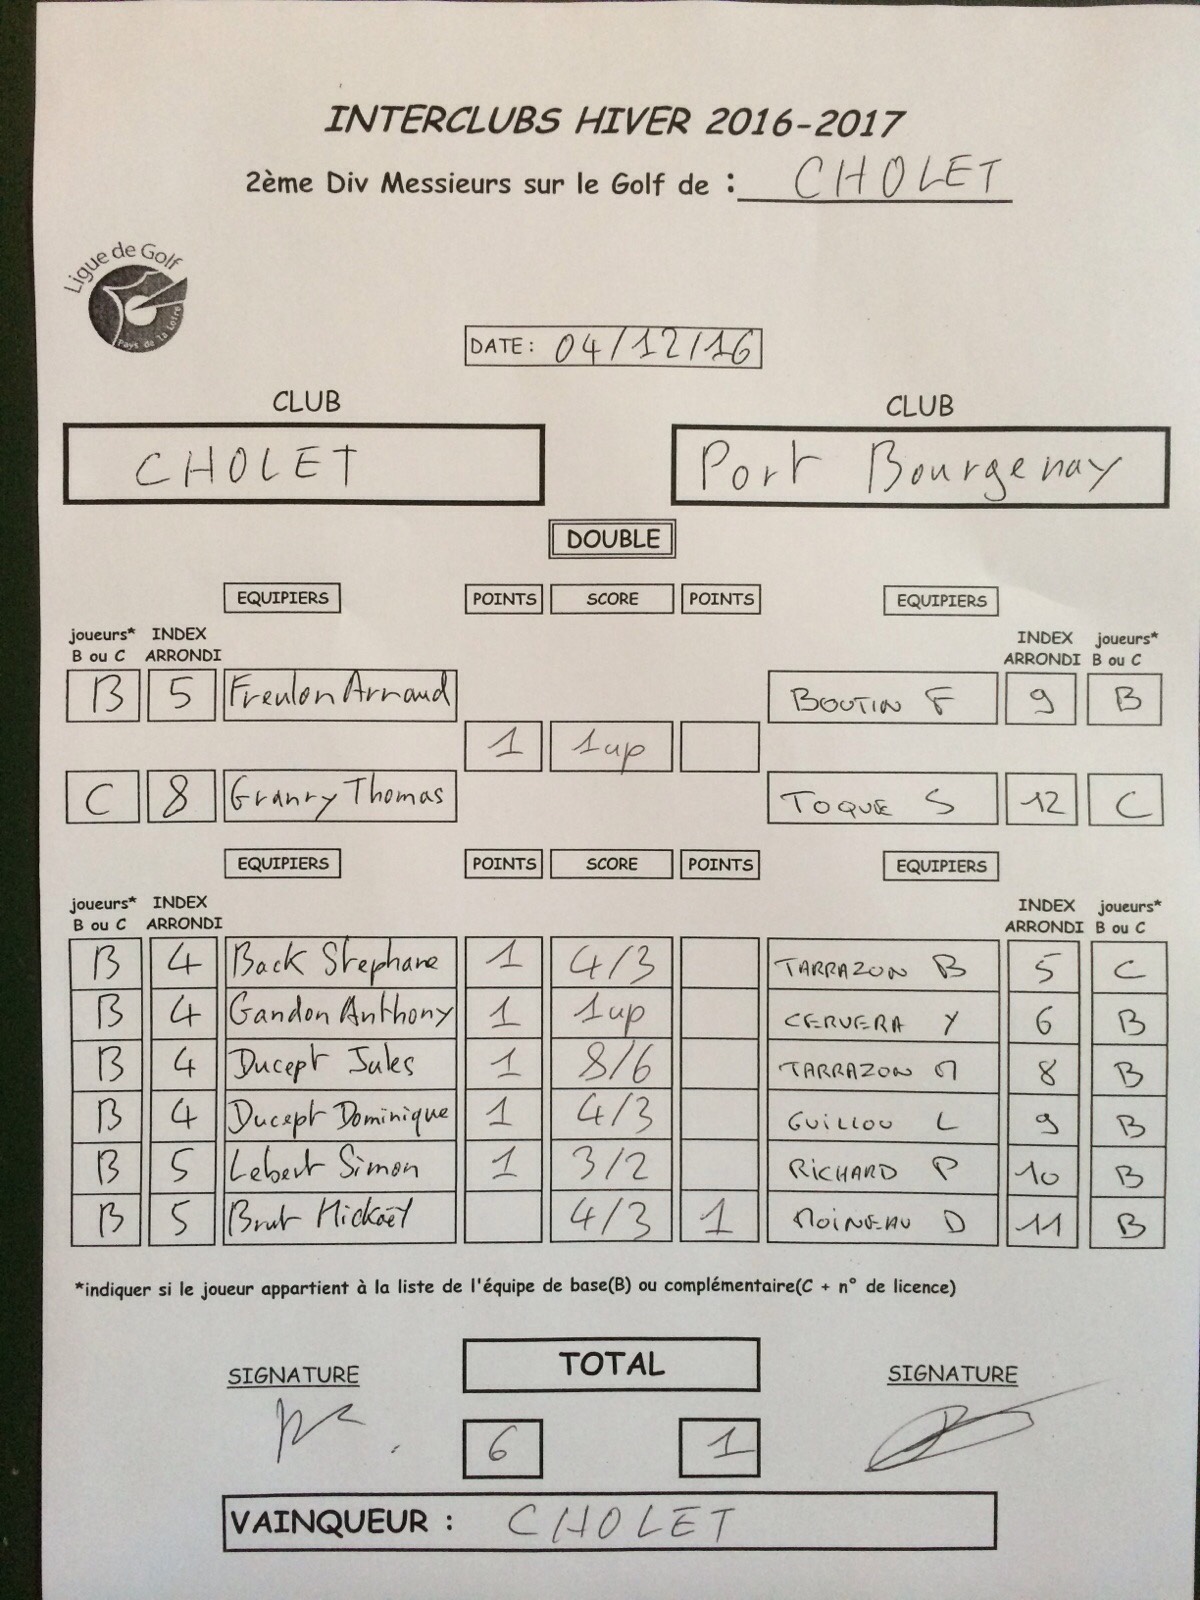 INTERCLUBS HIVER 2016-2017
2ème Div Messieurs sur le Golf de : CHOLET
Ligue de Golf
Pays de la Loire
DATE: 04/12/16
CLUB CLUB
CHOLET Port Bourgenay
DOUBLE
EQUIPIERS POINTS SCORE POINTS EQUIPIERS
joueurs* INDEX INDEX joueurs*
B ou C ARRONDI ARRONDI B ou C
B 5 Freulon Arnaud BOUTIN F 9 B
1 1up
C 8 Granry Thomas TOQUE S 12 C
EQUIPIERS POINTS SCORE POINTS EQUIPIERS
joueurs* INDEX INDEX joueurs*
B ou C ARRONDI ARRONDI B ou C
B 4 Back Stephane 1 4/3 TARRAZON B 5 C
B 4 Gandon Anthony 1 1up CERVERA Y 6 B
B 4 Ducept Jules 1 8/6 TARRAZON M 8 B
B 4 Ducept Dominique 1 4/3 GUILLOU L 9 B
B 5 Lebert Simon 1 3/2 RICHARD P 10 B
B 5 Brut Mickaël 4/3 1 MOINEAU D 11 B
*indiquer si le joueur appartient à la liste de l'équipe de base(B) ou complémentaire(C + n° de licence)
SIGNATURE TOTAL SIGNATURE
6 1
VAINQUEUR : CHOLET